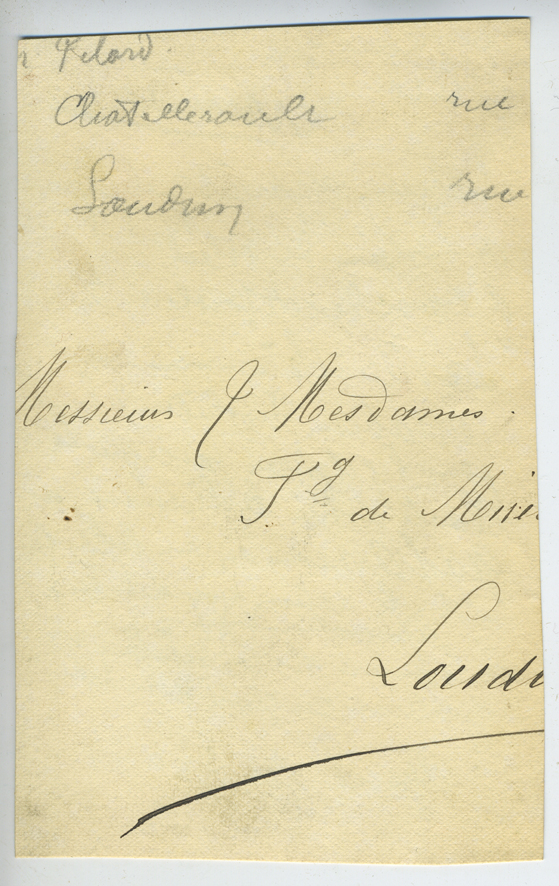 Chatellerault rue
Loudun rue
Messieurs & Mesdames
Fg de Mire
Loudu